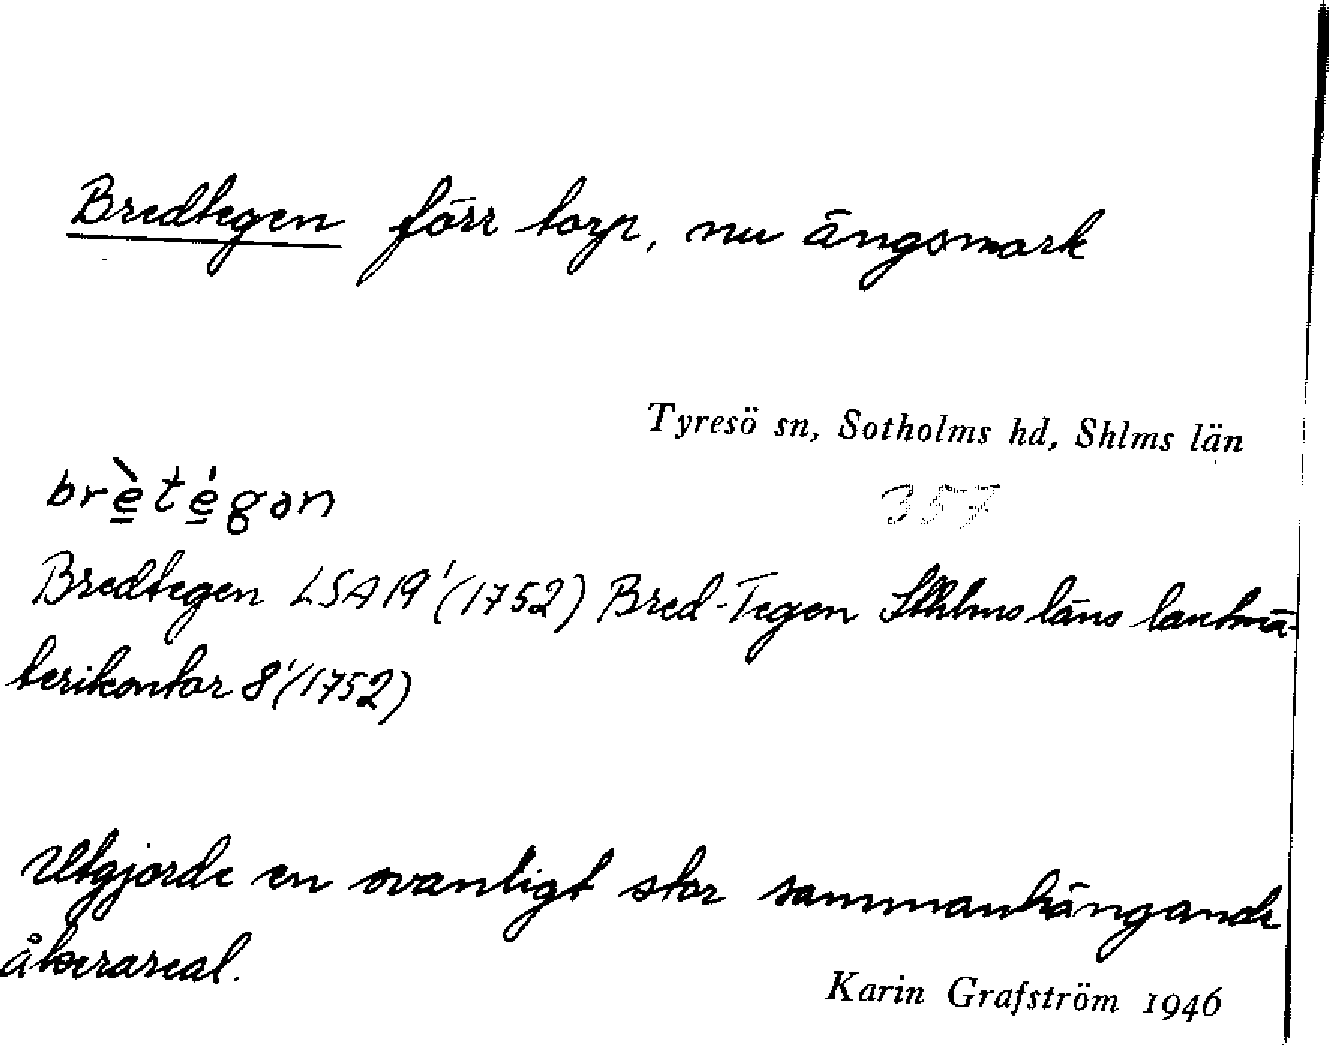 Bredtegen förr torp, nu ängsmark
Tyresö sn, Sotholms hd, Shlms län
brè̲té̲gən
357
Bredtegen LSA 19'(1752) Bred-Tegen Sthlms läns lantmä-
terikontor 8'(1752)
Utgjorde en ovanligt stor sammanhängande
åkerareal.
Karin Grafström 1946